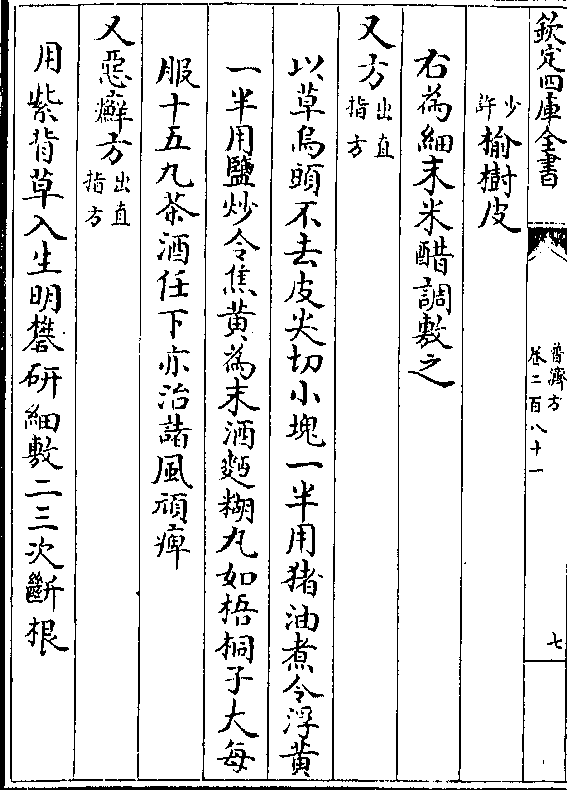 欽定四庫全書
普濟方
卷二百八十一
七
少許榆樹皮
右為細末米醋調敷之
又方出直指方
以草烏頭不去皮尖切小塊一半用猪油煮令浮黄
一半用鹽炒令焦黄為末酒麪糊丸如梧桐子大每
服十五丸茶酒任下亦治諸風頑痺
又惡癬方出直指方
用紫背草入生明礬研細敷二三次斷根